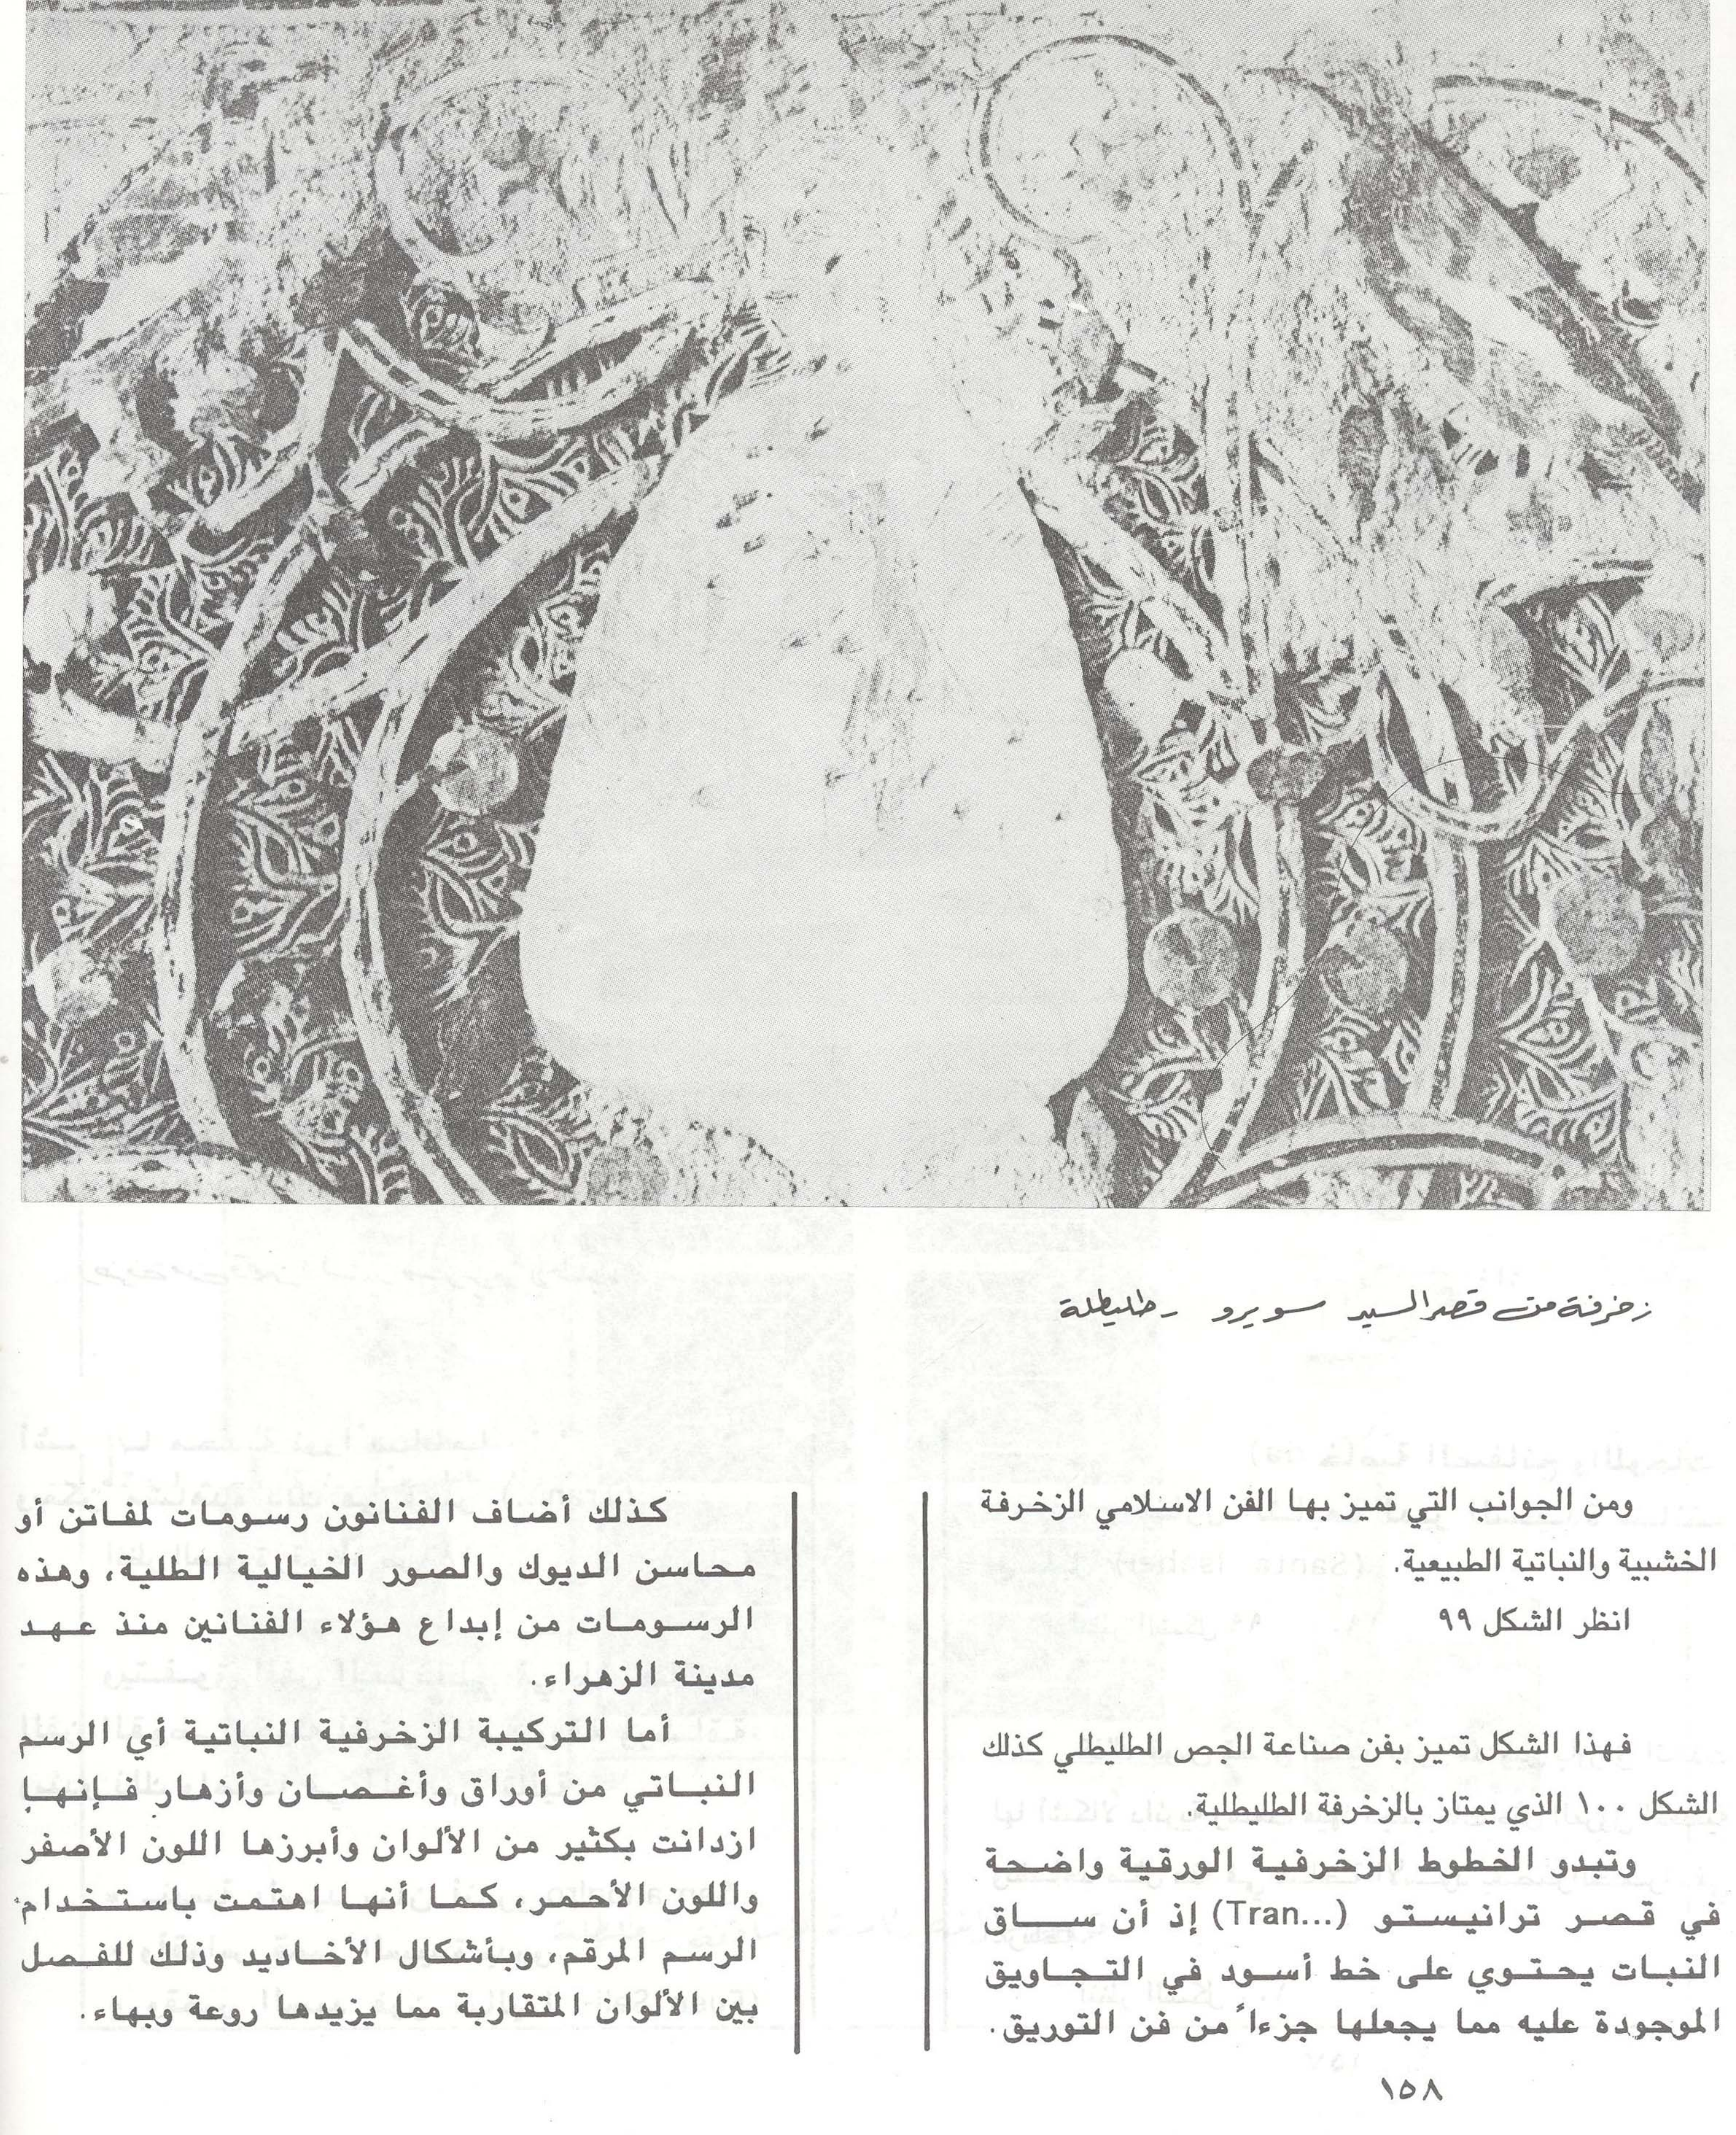 زخرفة من قصر السيد سويرو - طليطلة
ومن الجوانب التي تميز بها الفن الاسلامي الزخرفة
الخشبية والنباتية الطبيعية.
انظر الشكل ٩٩
فهذا الشكل تميز بفن صناعة الجص الطليطلي كذلك
الشكل ١٠٠ الذي يمتاز بالزخرفة الطليطلية.
وتبدو الخطوط الزخرفية الورقية واضحة
في قصر ترانيستو (Tran...) إذ أن ساق
النبات يحتوي على خط أسود في التجاويق
الموجودة عليه مما يجعلها جزءاً من فن التوريق.
كذلك أضاف الفنانون رسومات لمفاتن أو
محاسن الديوك والصور الخيالية الطلية، وهذه
الرسومات من إبداع هؤلاء الفنانين منذ عهد
مدينة الزهراء.
أما التركيبة الزخرفية النباتية أي الرسم
النباتي من أوراق وأغصان وأزهار فإنها
ازدانت بكثير من الألوان وأبرزها اللون الأصفر
واللون الأحمر، كما أنها اهتمت باستخدام
الرسم المرقم، وبأشكال الأخاديد وذلك للفصل
بين الألوان المتقاربة مما يزيدها روعة وبهاء.
١٥٨